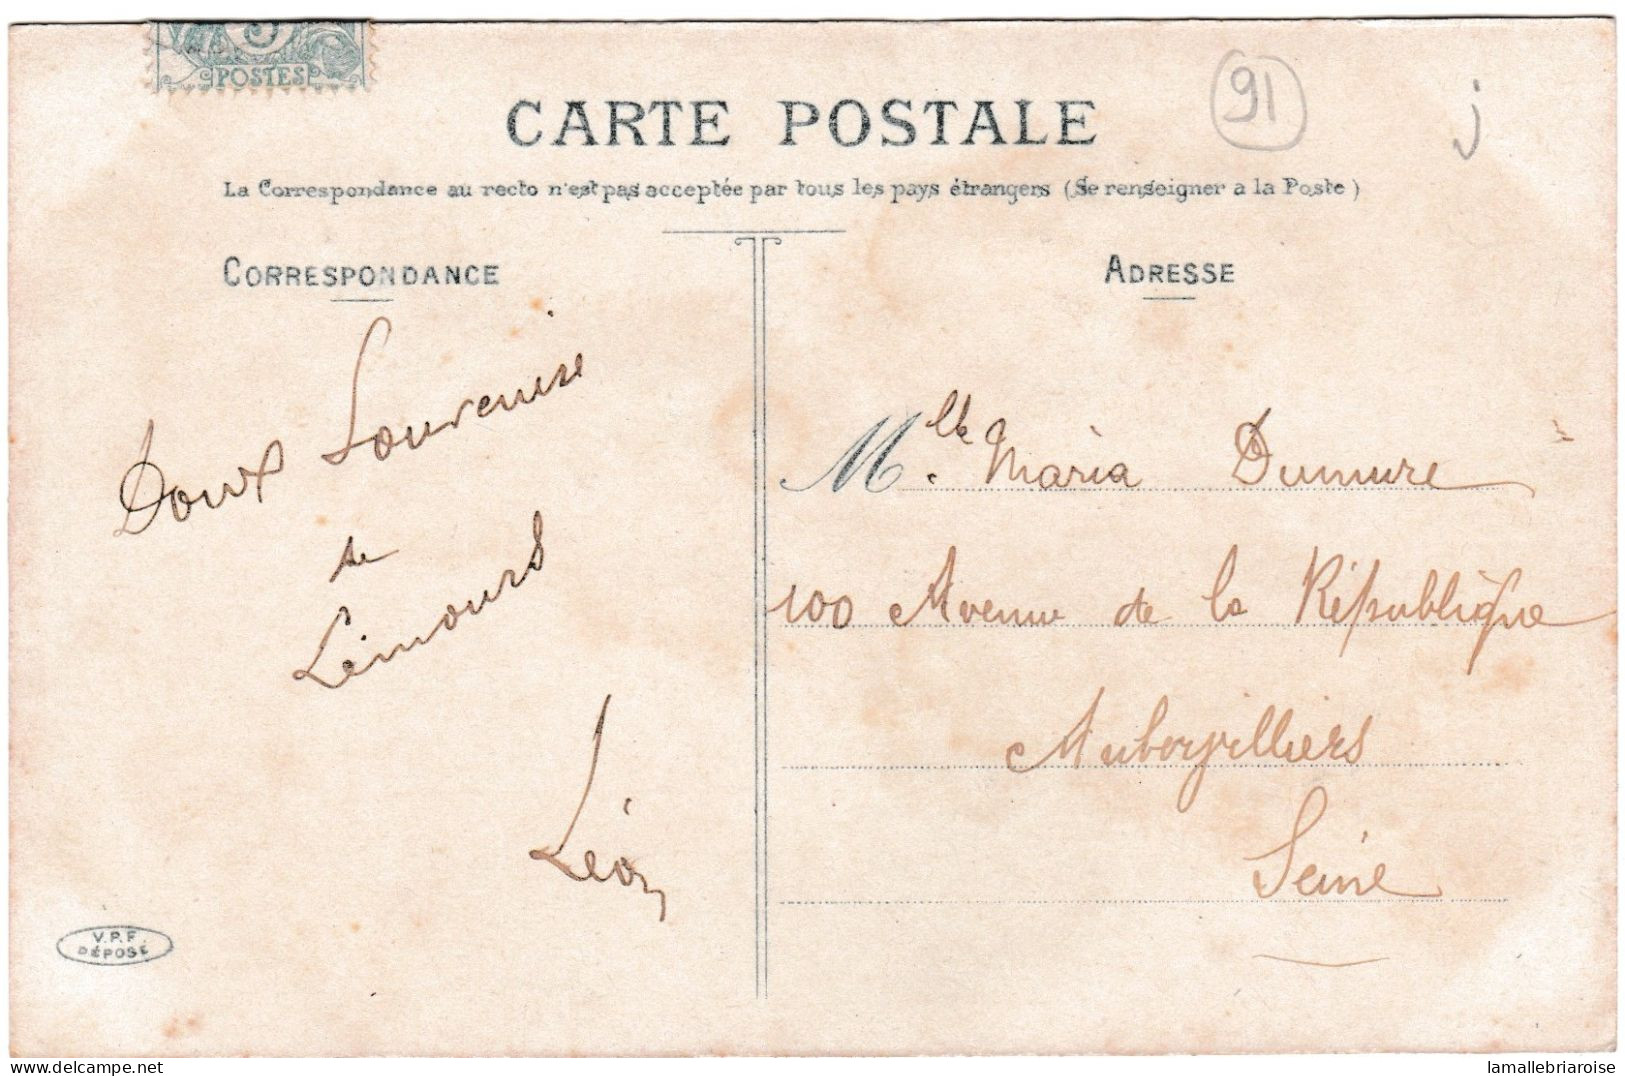 5
POSTES
CARTE POSTALE
91
j
La Correspondance au recto n'est pas acceptée par tous les pays étrangers (Se renseigner a la Poste)
CORRESPONDANCE
Doux Souvenire
de
Limours
Léon
V.P.F.
DÉPOSÉ
ADRESSE
Mlle Maria Dumure
100 Avenue de la République
Aubervilliers
Seine
lamallebriaroise